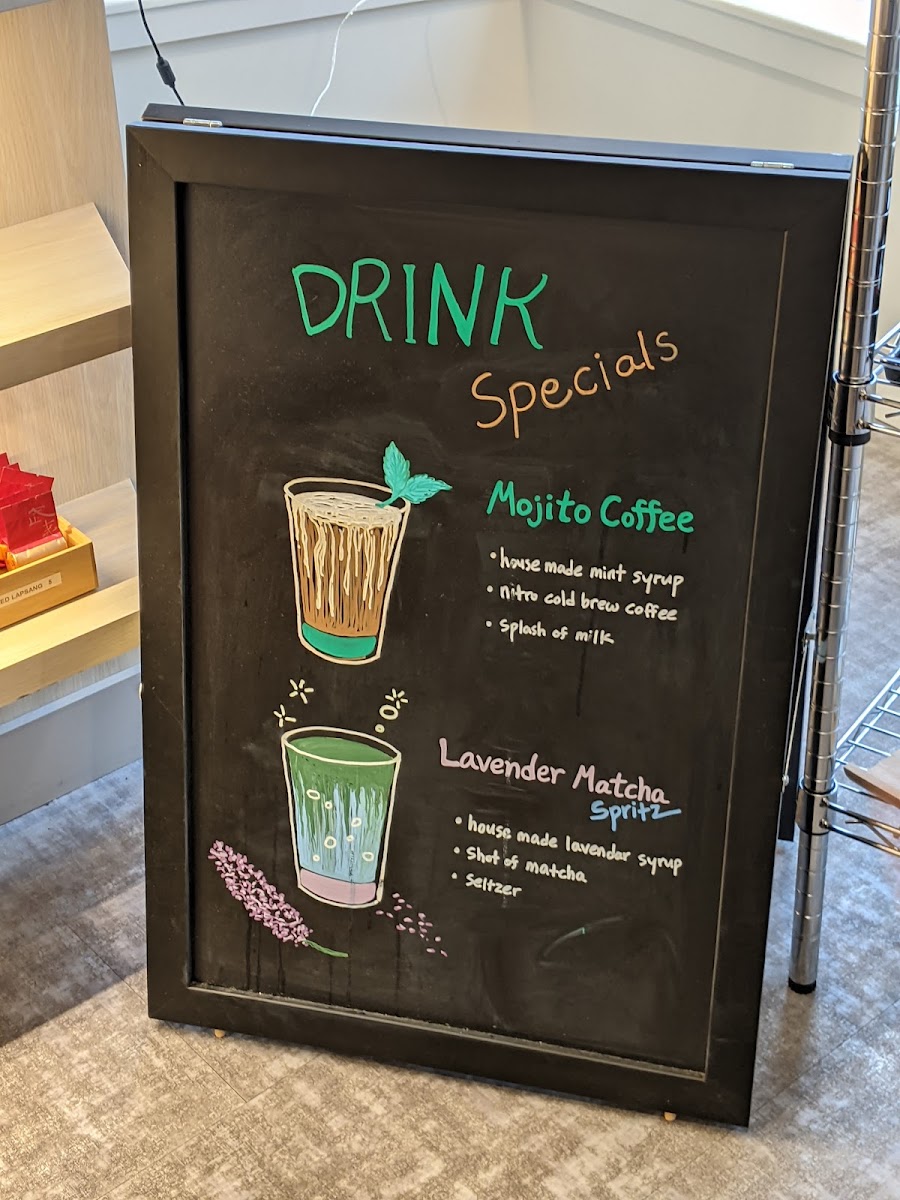 DRINK
Specials
Mojito Coffee
• house made mint syrup
• nitro cold brew coffee
• splash of milk
Lavender Matcha
Spritz
• house made lavendar syrup
• Shot of matcha
• Seltzer
LAPSANG